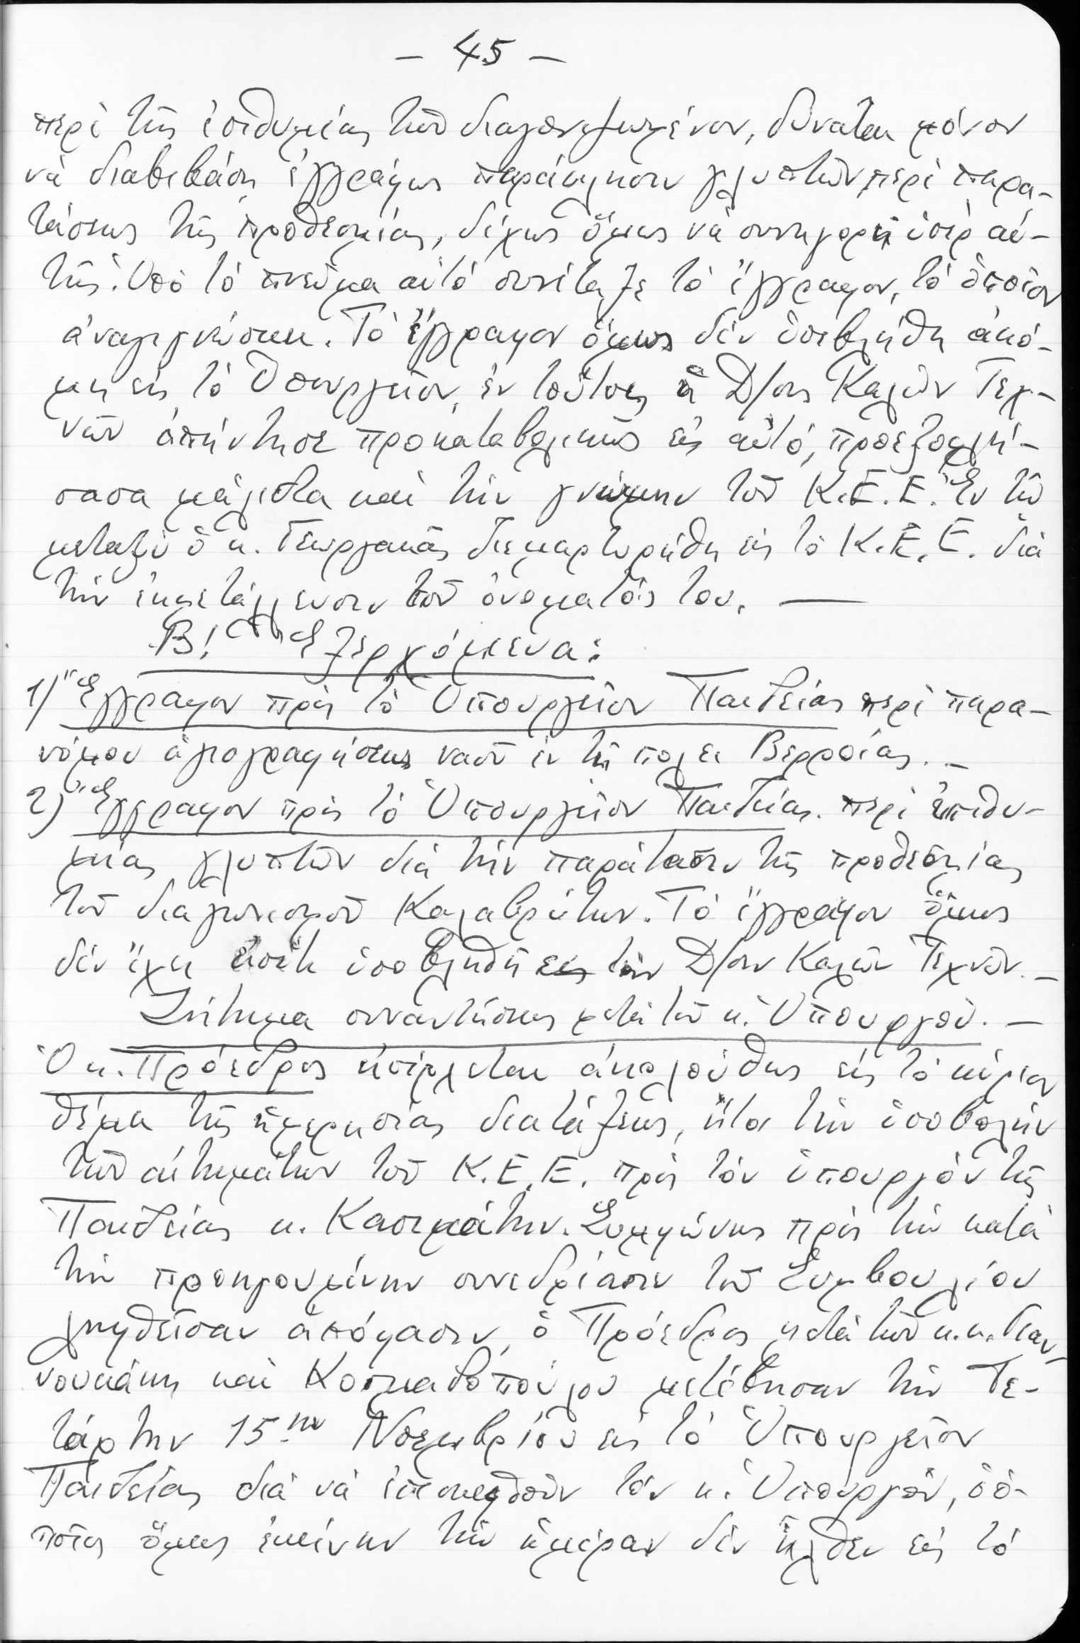 – 45 –
περὶ τῆς ἐπιθυμίας τῶν διαγωνιζομένων, δύναται μόνον
νὰ διαβιβάσῃ ἐγγράφως παράκλησιν γλυπτῶν περὶ παρα-
τάσεως τῆς προθεσμίας, δίχως ὅμως νὰ συνηγορῇ ὑπὲρ αὐ-
τῆς. Ὑπὸ τὸ πνεῦμα αὐτὸ συνέταξε τὸ ἔγγραφον, τὸ ὁποῖον
ἀναγιγνώσκει. Τὸ ἔγγραφον ὅμως δὲν ὑπεβλήθη ἀκό-
μη εἰς τὸ Ὑπουργεῖον, ἐν τούτοις ἡ Δ/σις Καλῶν Τεχ-
νῶν ἀπήντησε προκαταβολικῶς εἰς αὐτό, προεξοφλή-
σασα μάλιστα καὶ τὴν γνώμην τοῦ Κ.Ε.Ε. Ἐν τῷ
μεταξὺ ὁ κ. Γεωργακᾶς διεμαρτυρήθη εἰς τὸ Κ.Ε.Ε. διὰ
τὴν ἐκμετάλλευσιν τοῦ ὀνόματός του. —
Β! Ἐξερχόμενα:
1) Ἔγγραφον πρὸς τὸ Ὑπουργεῖον Παιδείας περὶ παρα-
νόμου ἁγιογραφήσεως ναοῦ ἐν τῇ πόλει Βερροίας. –
2) Ἔγγραφον πρὸς τὸ Ὑπουργεῖον Παιδείας. περὶ ἐπιθυ-
μίας γλυπτῶν διὰ τὴν παράτασιν τῆς προθεσμίας
τοῦ διαγωνισμοῦ Καλαβρύτων. Τὸ ἔγγραφον ὅμως
δὲν ἔχει ὑποβληθῆ εἰς τὴν Δ/σιν Καλῶν Τεχνῶν. –
Ζήτημα συναντήσεως μετὰ τοῦ κ. Ὑπουργοῦ. –
Ὁ κ. Πρόεδρος εἰσέρχεται ἀκολούθως εἰς τὸ κύριον
θέμα τῆς ἡμερησίας διατάξεως, ἤτοι τὴν ὑποβολὴν
τῶν αἰτημάτων τοῦ Κ.Ε.Ε. πρὸς τὸν ὑπουργὸν τῆς
Παιδείας κ. Κασιμάτην. Συμφώνως πρὸς τὴν κατὰ
τὴν προηγουμένην συνεδρίασιν τοῦ Συμβουλίου
ληφθεῖσαν ἀπόφασιν, ὁ Πρόεδρος μετὰ τῶν κ.κ. Γιαν-
νουκάκη καὶ Κοσμαδοπούλου μετέβησαν τὴν Τε-
τάρτην 15ην Νοεμβρίου εἰς τὸ Ὑπουργεῖον
Παιδείας διὰ νὰ ἐπισκεφθοῦν τὸν κ. Ὑπουργόν, ὁ ὁ-
ποῖος ὅμως ἐκείνην τὴν ἡμέραν δὲν ἦλθεν εἰς τὸ